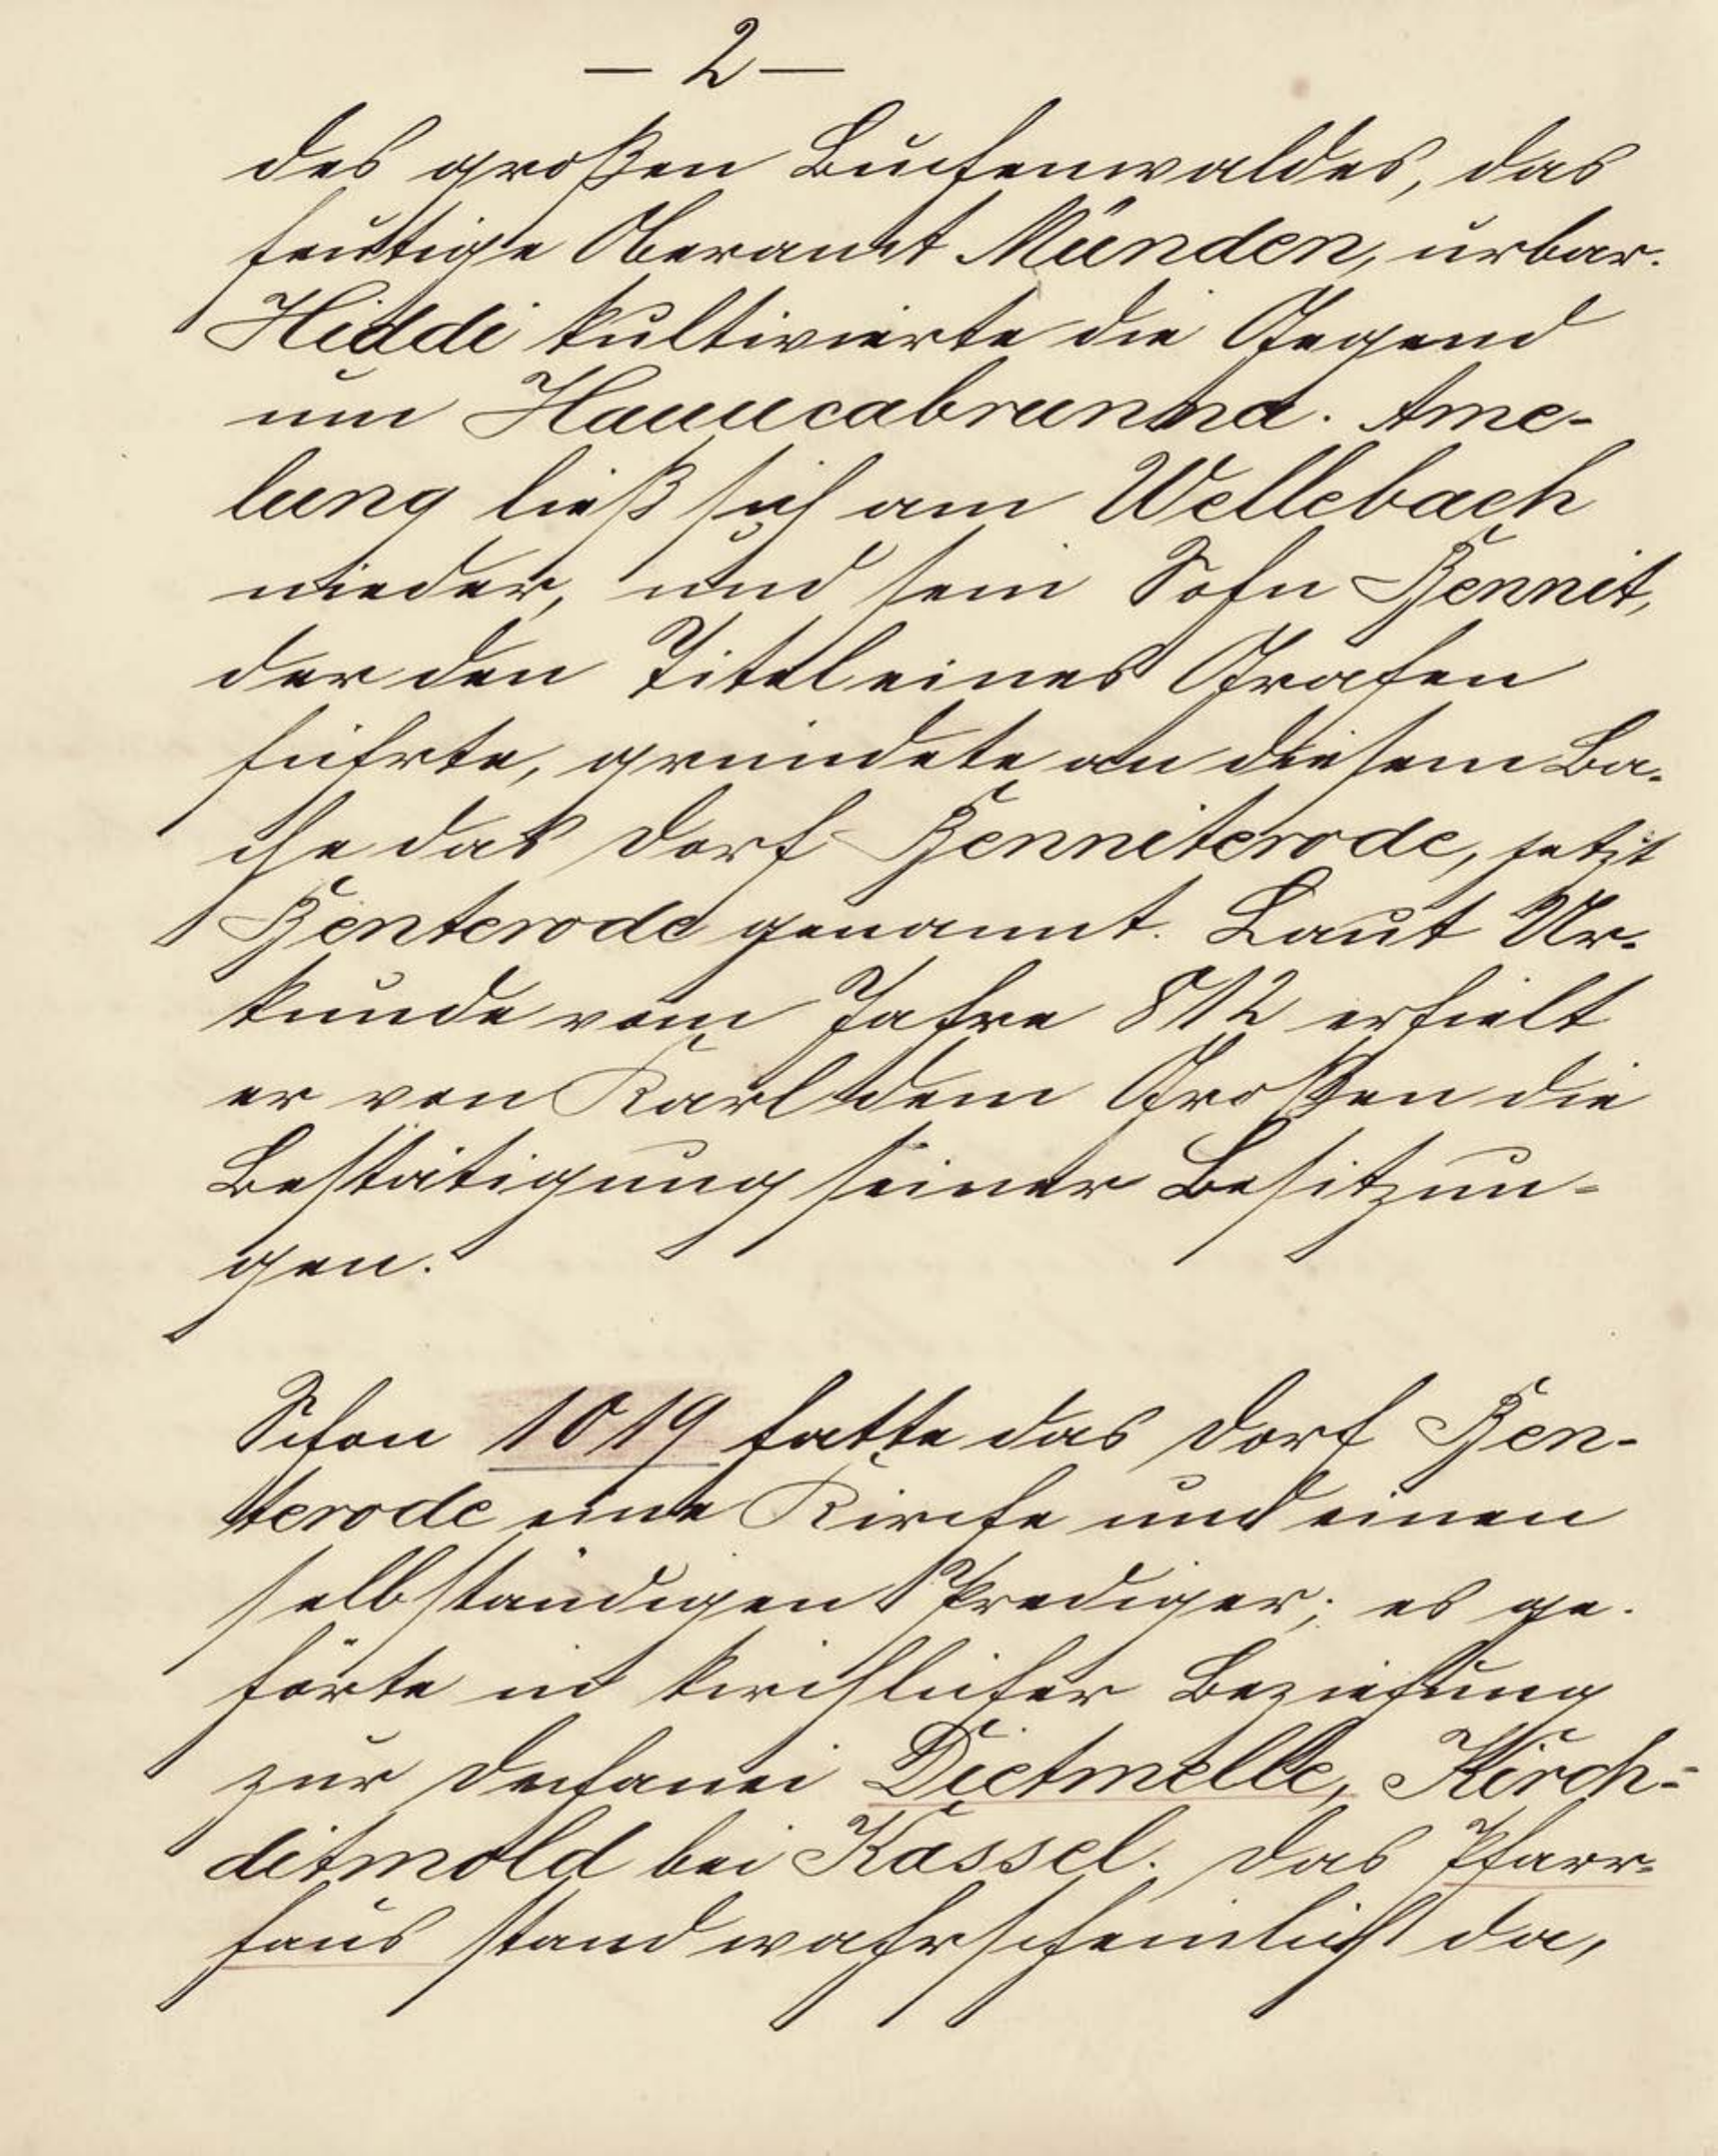 — 2 —
des großen Buchenwaldes, das
heutige Oberamt Münden, urbar.
Hiddi kultivierte die Gegend
um Hauucabrunna. Ame-
lung ließ sich am Wellebach
nieder, und sein Sohn Bennit,
der den Titel eines Grafen
führte, gründete an diesem Ba-
che das Dorf Benniterode, jetzt
Benterode genannt. Laut Ur-
kunde vom Jahre 812 erhielt
er von Karl dem Großen die
Bestätigung seiner Besitzun-
gen.
Schon 1019 hatte das Dorf Ben-
terode eine Kirche und einen
selbständigen Prediger; es ge-
hörte in kirchlicher Beziehung
zur Dechanei Dietmelle, Kirch-
ditmold bei Kassel. Das Pfarr-
haus stand wahrscheinlich da,